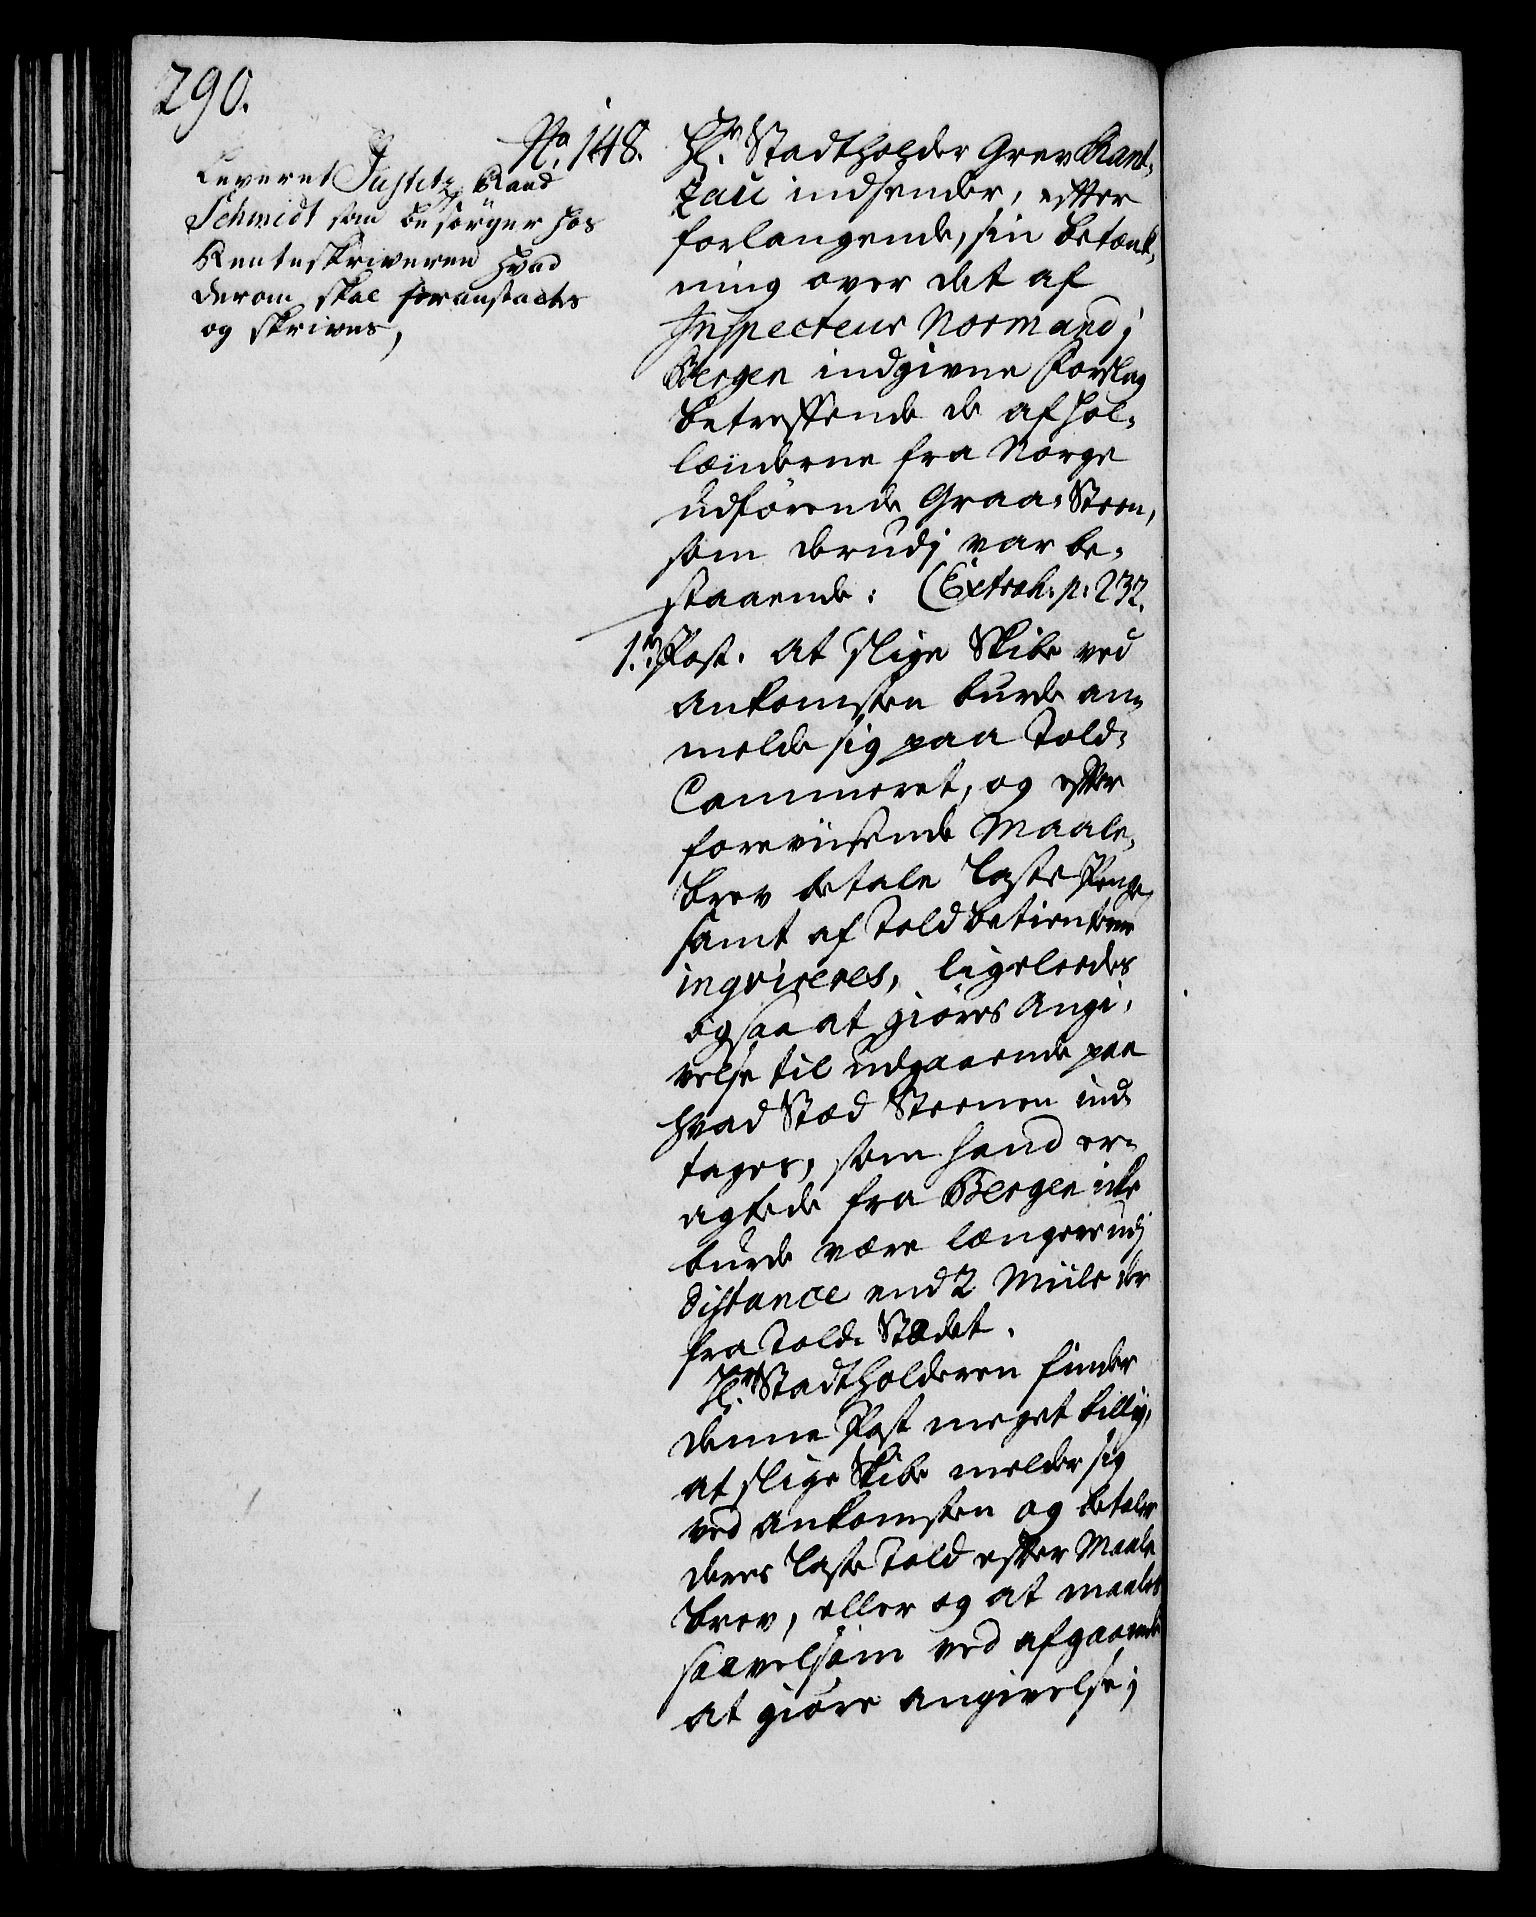 290.
No. 148.
Leveret Justitz Raad
Schmidt som besörger hos
Renteskriveren hvad
derom skal foranstaltes
og skrives,
Hr. Stadtholder Grev Rant-
zau indsender, efter
forlangende, sin betænk-
ning over det af
Inspecteur Normand i
Bergen indgivne Forslag
betreffende de af Hol-
lænderne fra Norge
udförende Graa-Steen,
som derudj var be-
staaende: (Extrah: p: 232.
1.te Post. At slige Skibe ved
Ankomsten burde an-
melde sig paa Told-
Cammeret, og efter
foreviisende Maale-
brev betale Laste Penge
samt af Toldbetienterne
inqvireres, ligeledes
ogsaa at giöres Angi-
velse til udgaaende paa
hvad Stæd Steenen ind-
tages, som hand er-
agtede fra Bergen icke
burde være længere udj
distance end 2 Miile der
fra Told-Stædet.
Hr. Stadtholderen finder
denne Post meget billig,
at slige Skibe melder sig
ved Ankomsten og betaler
deres Laste Told efter Maale-
brev, eller og at maales
saavelsom ved afgaaende
at giöre angivelse;